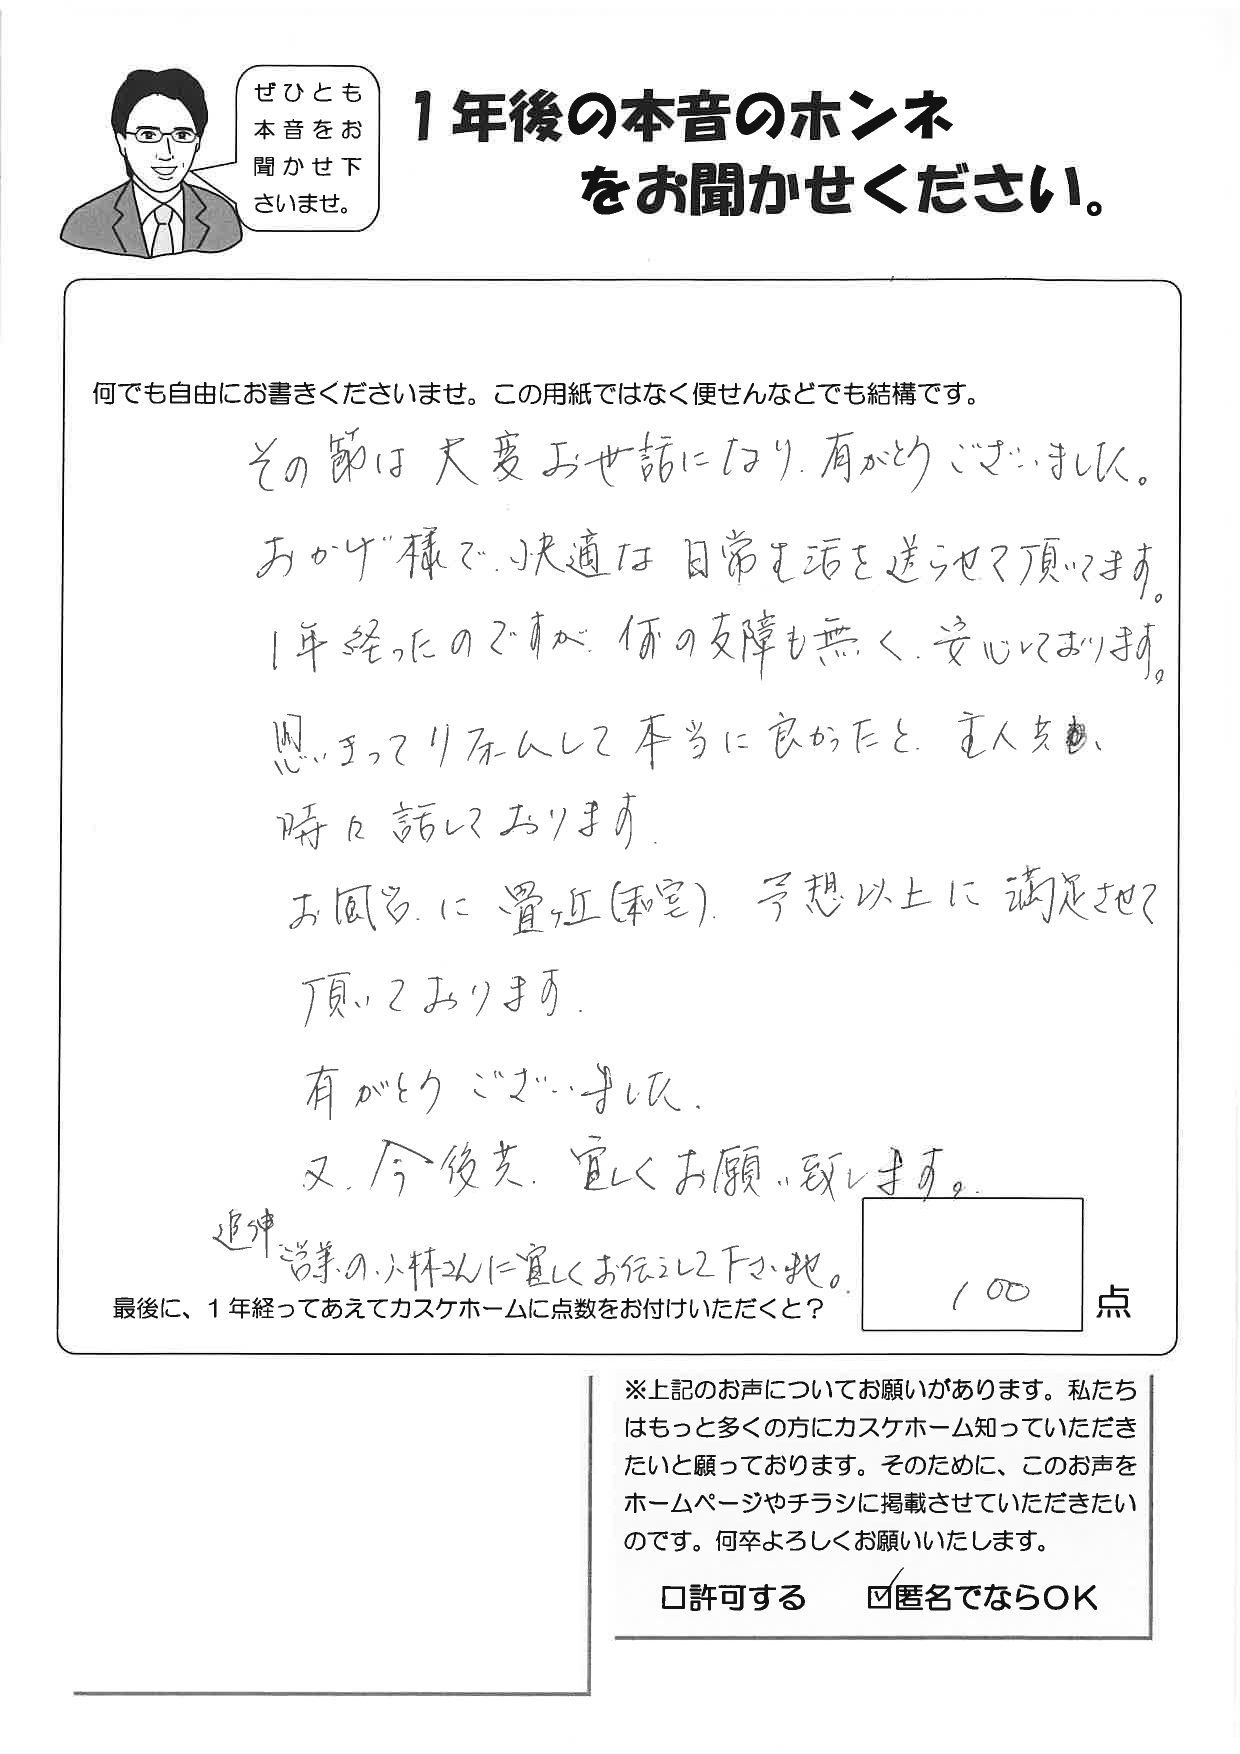 ぜひとも
本音をお
聞かせ下
さいませ。
１年後の本音のホンネ
をお聞かせください。
何でも自由にお書きくださいませ。この用紙ではなく便せんなどでも結構です。
その節は大変お世話になり、有がとうございました。
おかげ様で、快適な日常生活を送らせて頂いてます。
1年経ったのですが、何の支障も無く、安心しております。
思いきってリフォームして本当に良かったと、主人共、
時々話しております。
お風呂、に畳ヶ丘(和室)、予想以上に満足させて
頂いております。
有がとうございました。
又、今後共、宜しくお願い致します。
追伸
営業の小林さんに宜しくお伝えして下さいませ。
最後に、１年経ってあえてカスケホームに点数をお付けいただくと？
100
点
※上記のお声についてお願いがあります。私たち
はもっと多くの方にカスケホーム知っていただき
たいと願っております。そのために、このお声を
ホームページやチラシに掲載させていただきたい
のです。何卒よろしくお願いいたします。
□許可する　☑匿名でならOK